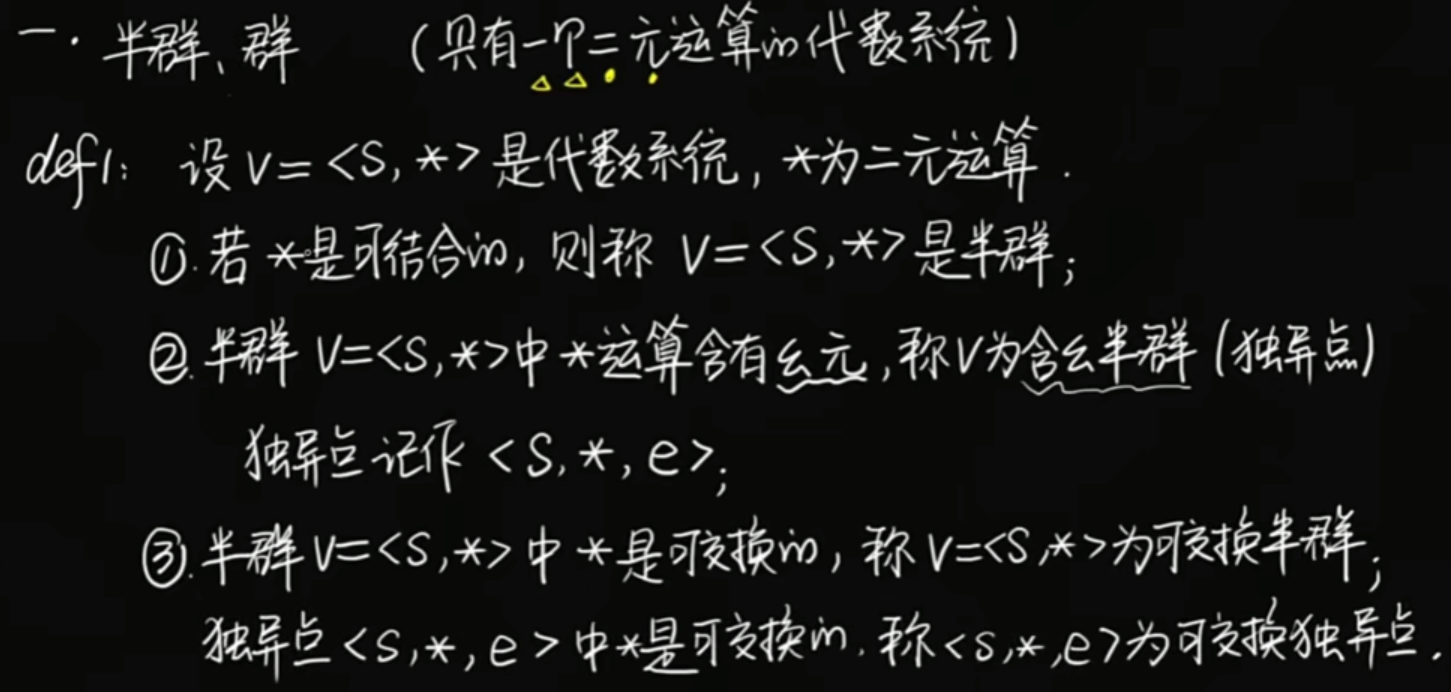 一. 半群、群 (只有一个二元运算的代数系统)
def1: 设 V=<S,*>是代数系统, *为二元运算.
①. 若 *是可结合的, 则称 V=<S,*>是半群;
②. 半群 V=<S,*>中 *运算含有幺元, 称V为含幺半群 (独异点)
独异点记作 <S,*,e>;
③. 半群 V=<S,*> 中 *是可交换的, 称 V=<S,*>为可交换半群;
独异点<S,*,e>中*是可交换的, 称<S,*,e>为可交换独异点.